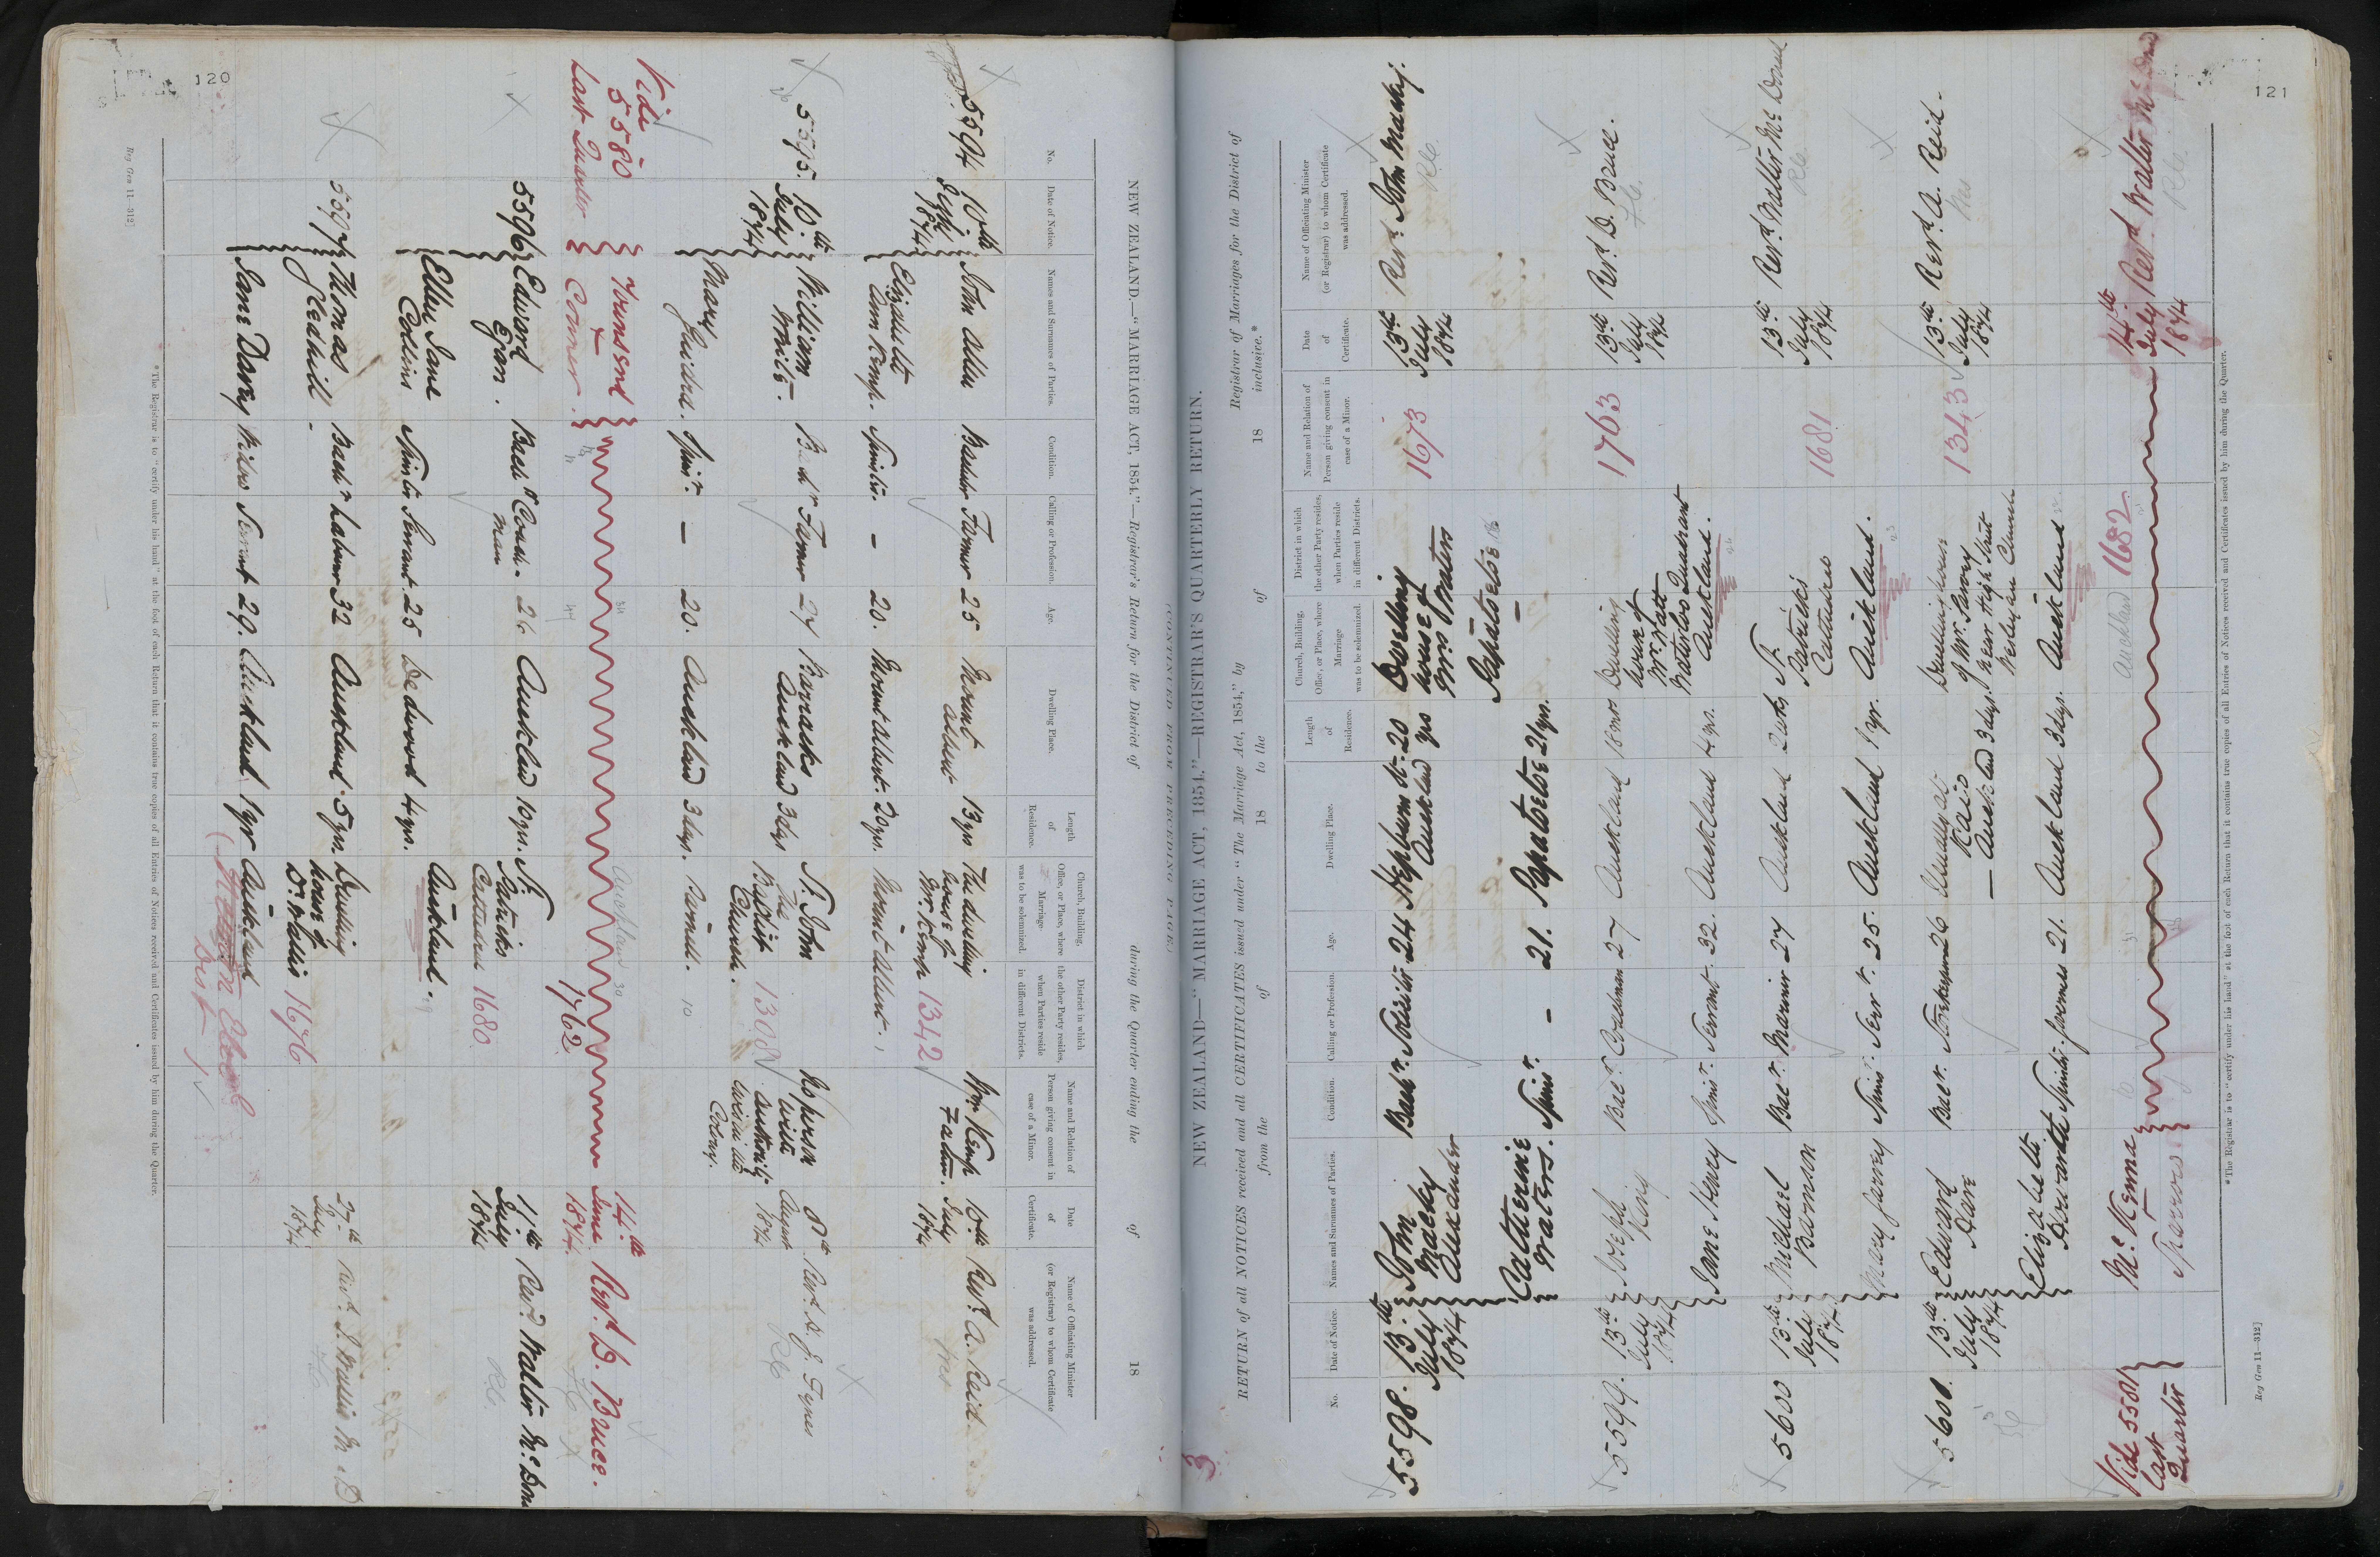 120
NEW ZEALAND.—"MARRIAGE ACT, 1854."—Registrar's Return for the District of during the Quarter ending the of 18
No.
Date of Notice.
Names and Surnames of Parties.
Condition.
Calling or Profession.
Age.
Dwelling Place.
Length of Residence.
Church, Building, Office, or Place, where Marriage was to be solemnized.
District in which the other Party resides, when Parties reside in different Districts.
Name and Relation of Person giving consent in case of a Minor.
Date of Certificate.
Name of Officiating Minister (or Registrar) to whom Certificate was addressed.
5594 10th July 1874 John Allen Farmer 25 Mount Albert 13 yrs The dwelling house of Mr. Kemp 1342 Wm Kemp Father 10th July 1874 Revd. A. Reid
Elizabeth Ann Kemp. Spinster. — 20. Mount Albert. 20 yrs. Mount Albert.
5595. 10th July 1874 William White. Bachr Farmer 27 Barracks Auckland 3 dys St. John the Baptist Church. 1308 No person with authority in the Colony. 8th August 1874
Mary Spinr. — 20. Auckland 3 dys. Parnell. 10
Vide 5580 Last Quarter Townsend & Conner. Auckland 30 1762 14th June 1874. Revd. D. Bruce.
5596 Edward Egan. Bachr Coachman 26 Auckland 10 yrs. St. Patricks Cathedral 1680 11th July 1874 Revd Walter McDon
Ellen Jane Collins Spinster Servant. 25 Dedwood 4 yrs. Auckland.
5597 Thomas Gledhill. Bachr Labour 32 Auckland 5 yrs. Dwelling house of Dr. Wallis 1676 27th July 1874 Revd. J. Wallis M.D
Jane Davey Widow Servant 29. Auckland 1 yr Auckland
* The Registrar is to "certify under his hand" at the foot of each Return that it contains true copies of all Entries of Notices received and Certificates issued by him during the Quarter.
Reg Gen 11—312]
121
[CONTINUED FROM PRECEDING PAGE.]
NEW ZEALAND—"MARRIAGE ACT, 1854."—REGISTRAR'S QUARTERLY RETURN.
RETURN of all NOTICES received and all CERTIFICATES issued under "The Marriage Act, 1854," by Registrar of Marriages for the District of
from the of 18 to the of 18 inclusive.*
No.
Date of Notice.
Names and Surnames of Parties.
Condition.
Calling or Profession.
Age.
Dwelling Place.
Length of Residence.
Church, Building, Office, or Place, where Marriage was to be solemnized.
District in which the other Party resides, when Parties reside in different Districts.
Name and Relation of Person giving consent in case of a Minor.
Date of Certificate.
Name of Officiating Minister (or Registrar) to whom Certificate was addressed.
5598. 13th July 1874 John Macky Alexander Bachr. Solicitor 24 Hepburn St. Auckland 20 yrs Dwelling house of Mrs Waters 1673 13th July 1874 Revd. John Macky.
Catherine Waters. Spinr. — 21. Papatoetoe 21 yrs. Papatoetoe
5599. 13th July 1874 Joseph Bachr 27 Auckland Dwelling house of Mr. Watt Waterloo Quadrant 1763 13th July 1874 Revd D. Bruce.
Jane Henry Spinr. Servant 32. Auckland 4 yrs. Auckland.
5600 13th July 1874 Michael Bachr. Mariner 27 Auckland 2 wks St. Patricks Cathedral 1681 13th July 1874 Revd. Walter McDonald
Mary Garvey Spinr. Servt. 25. Auckland 1 yr. Auckland.
5601. 13th July 1874 Edward Dare Bachr. Storekeeper 26 Usually at — Auckland 3 days. Dwelling house of Mr. Savory near High Street Wesleyan Church 1343 13th July 1874 Revd. A. Reid.
Elizabeth Spinster. Governess 21. Auckland 3 dys. Auckland
Vide 5581 Last Quarter McKenna Sparrow Auckland 1682 14th July 1874 Revd. Walter McDonald
* The Registrar is to "certify under his hand" at the foot of each Return that it contains true copies of all Entries of Notices received and Certificates issued by him during the Quarter.
Reg Gen 11—312]
3